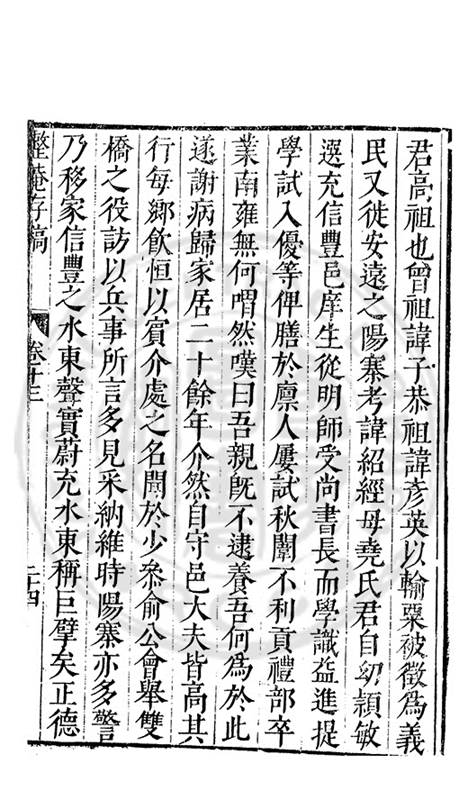 君高祖也曾祖諱子恭祖諱彥英以輸粟被徵爲義
民又徙安遠之陽寨考諱紹經母堯氏君自幼穎敏
選充信豐邑庠生從明師受尚書長而學識益進提
學試入優等俾膳於廪人屢試秋闈不利貢禮部卒
業南雍無何喟然嘆曰吾親旣不逮養吾何爲於此
遂謝病歸家居二十餘年介然自守邑大夫皆高其
行每鄉飲恒以賓介處之名聞於少叅俞公會舉雙
橋之役訪以兵事所言多見采納維時陽寨亦多警
乃移家信豐之水東聲實蔚充水東稱巨擘矣正德
存稿
卷十三
二十四